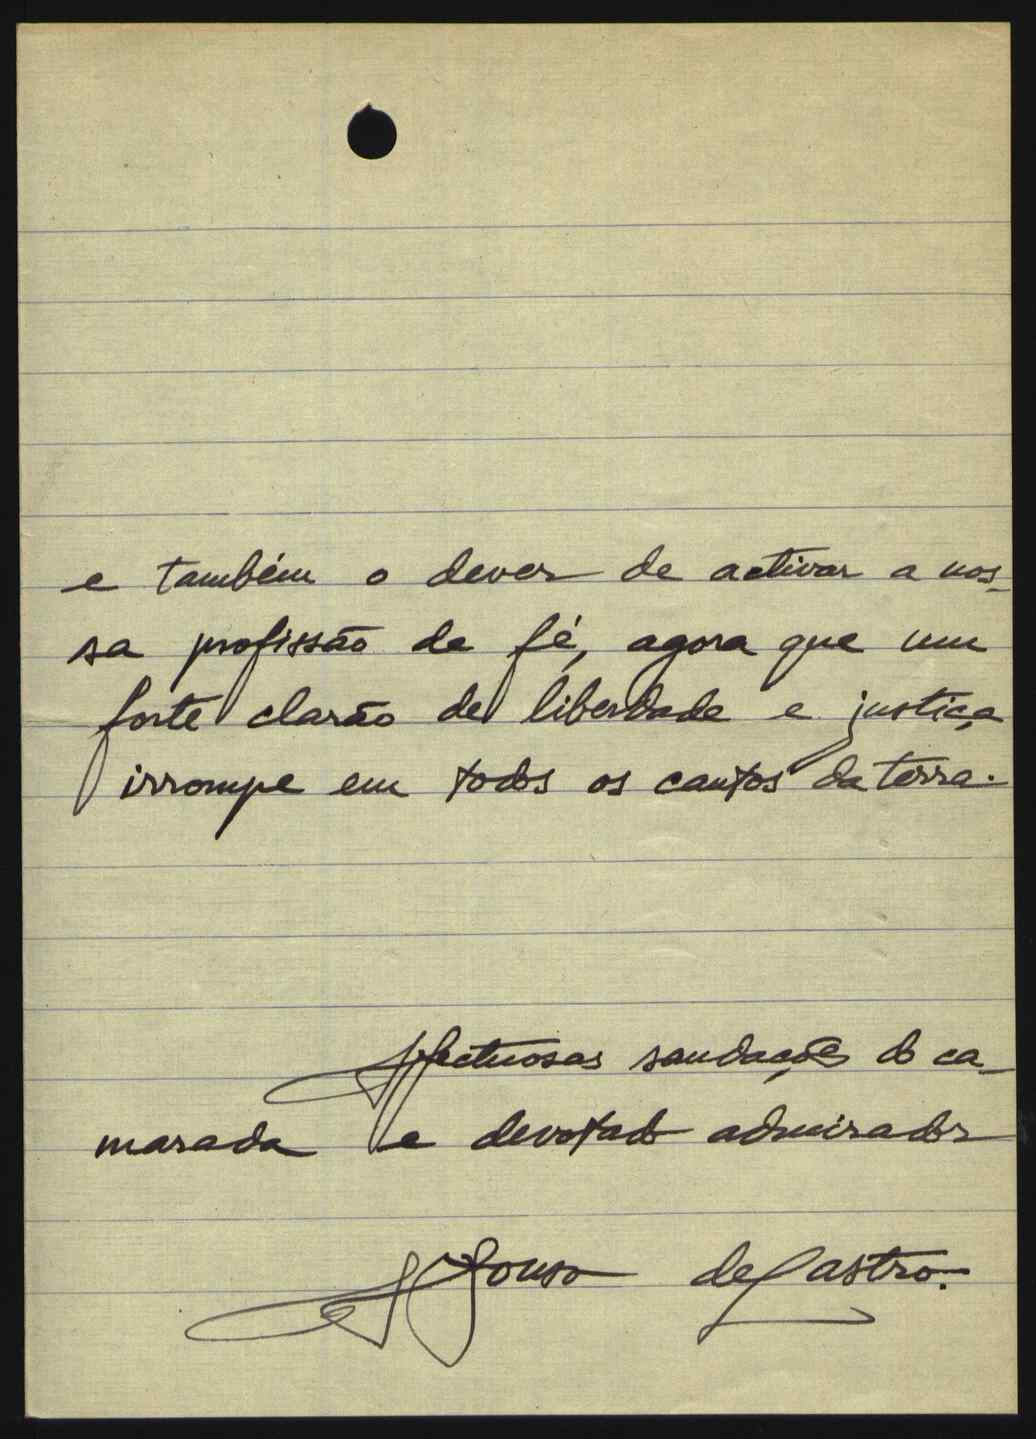 e também o dever de activar a nos-
sa profissão de fé, agora que um
forte clarão de liberdade e justiça
irrompe em todos os cantos da terra.
Afectuosas saudações do ca-
marada e devotado admirador
Afonso de Castro.